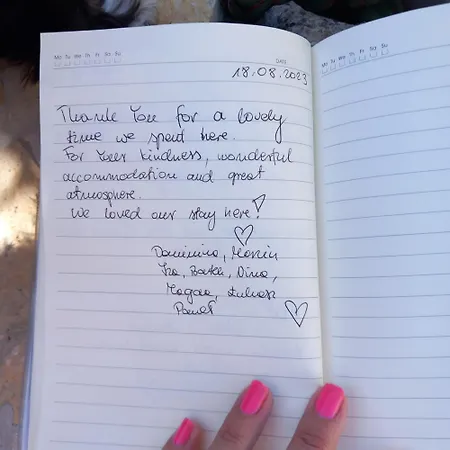 Mo Tu We Th Fr Sa Su
DATE
18.08.2023
Thank You for a lovely
time we spend here.
For Your kindness, wonderful
accommodation and great
atmosphere.
We loved our stay here!
Dominika, Marcin
Iza, Bartek, Dina,
Magda, Łukasz
Paweł
Mo Tu We Th Fr Sa Su